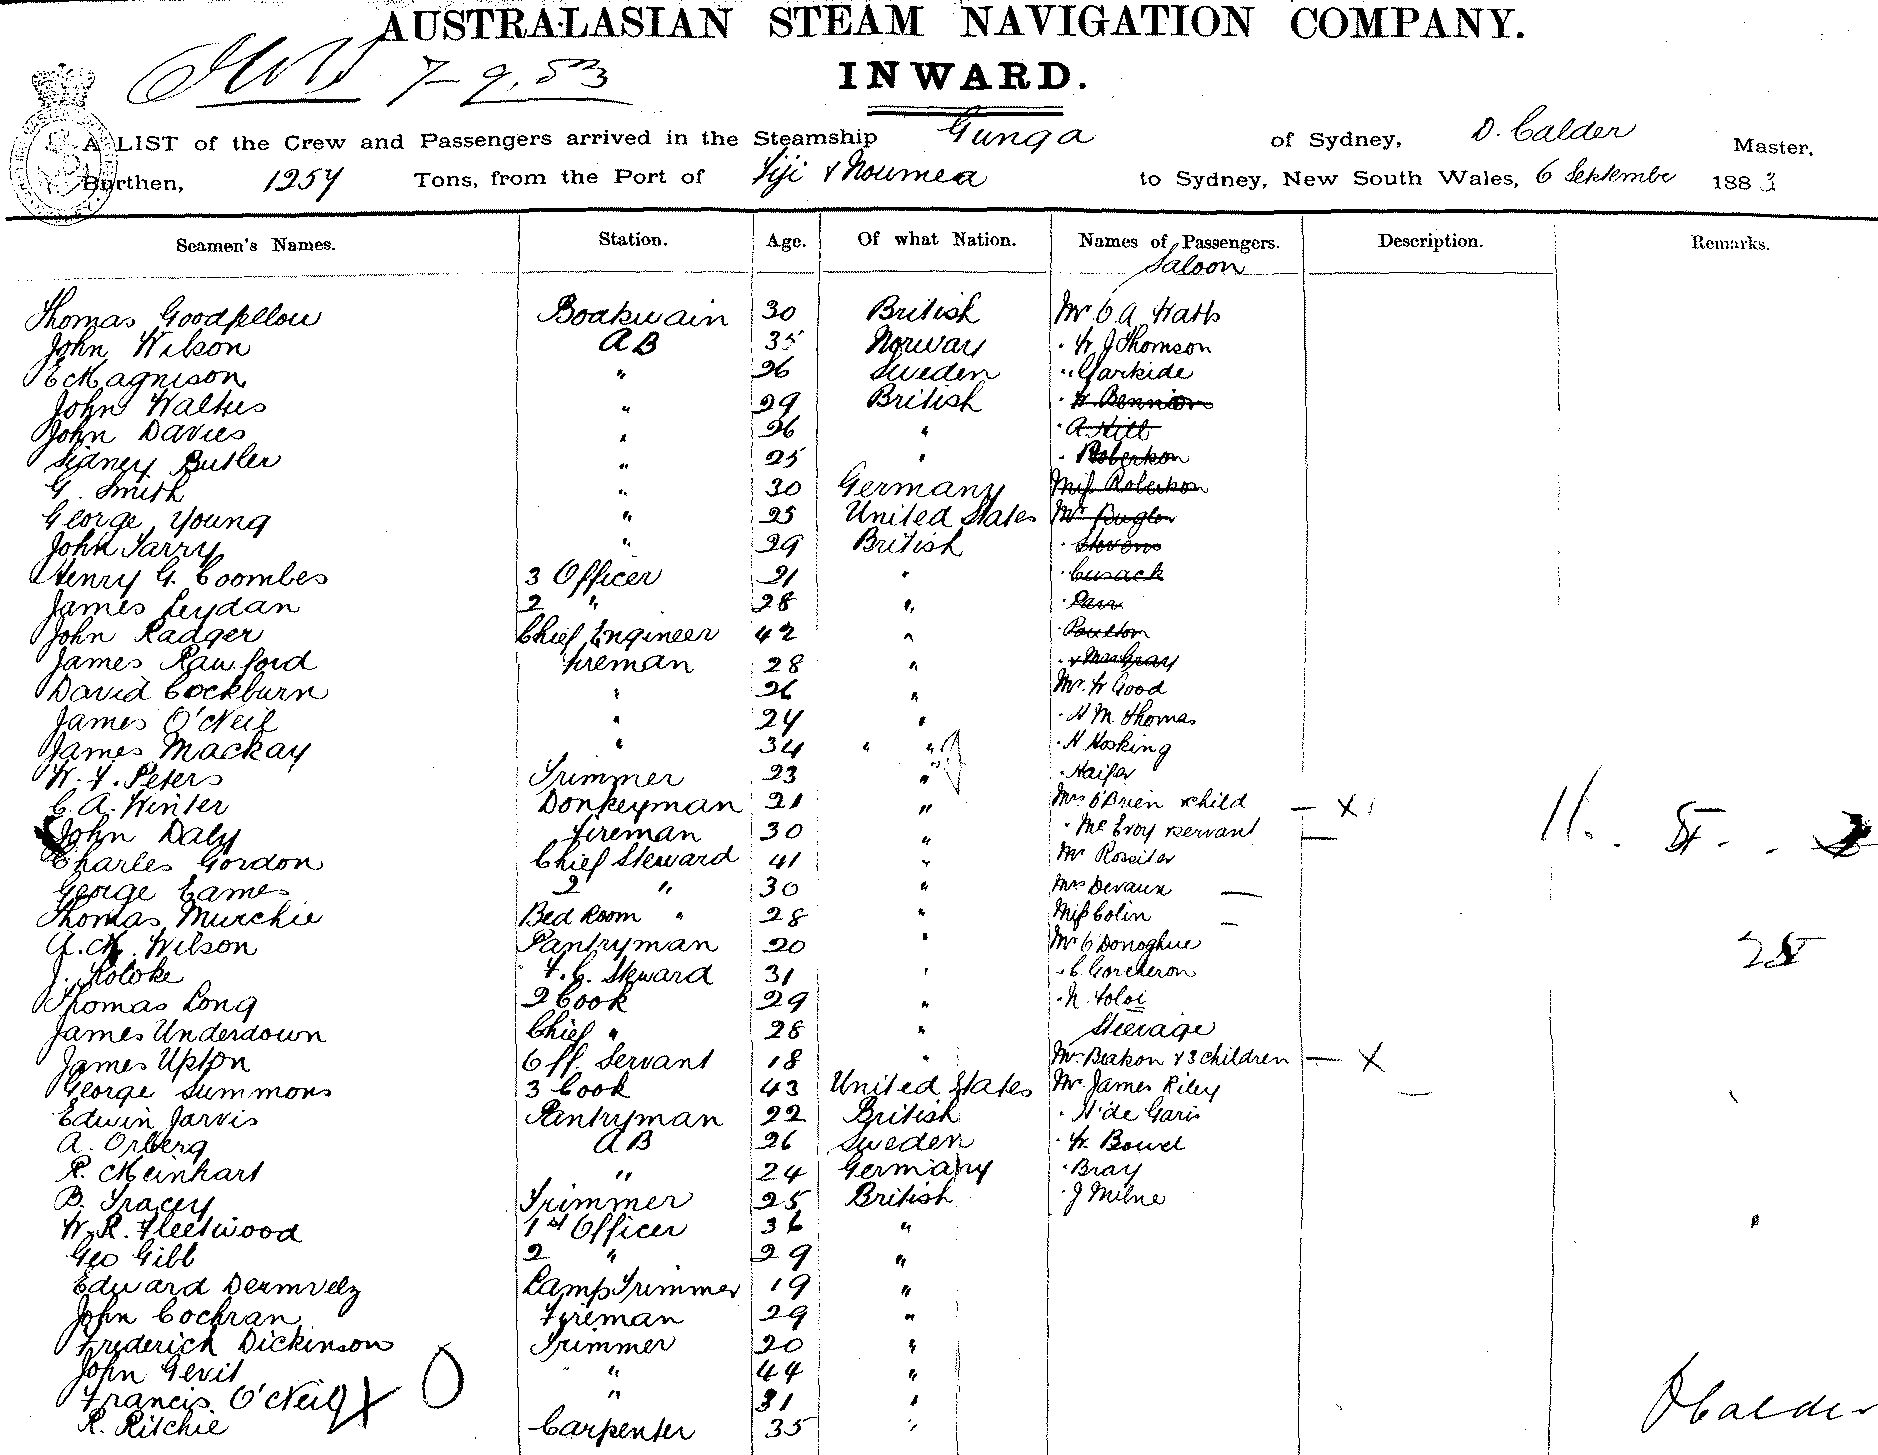 AUSTRALASIAN STEAM NAVIGATION COMPANY.
7-9.53
INWARD.
A LIST of the Crew and Passengers arrived in the Steamship Gunga of Sydney, D. Calder Master,
Burthen, 1257 Tons, from the Port of Fiji & Noumea to Sydney, New South Wales, 6 September 1883
Seamen's Names. Station. Age. Of what Nation. Names of Passengers. Description. Remarks.
Saloon
Thomas Goodfellow Boatswain 30 British Mr O A Watts
John Wilson AB 35 Norway " W J Thomson
E Magnison " 26 Sweden " Garside
John Walters " 29 British " W. Bennion
John Davies " 26 " " A. Hill
Sidney Butler " 25 " " Robertson
G. Smith " 30 Germany Miss Robertson
George Young " 25 United States Mr Bugler
John Tarry " 29 British " Stevens
Henry G. Coombes 3 Officer 21 " " Cusack
James Leydan 2 " 28 " " Parr
John Radger Chief Engineer 42 " " Poulton
James Rawford Fireman 28 " " & Mrs Gray
David Cockburn " 26 " Mr. W Good
James O'Neil " 24 " " H M Thomas
James Mackay " 34 " " " H Hosking
W. F. Peters Trimmer 23 " " Naifar
C. A. Winter Donkeyman 21 " Mrs O'Brien & child — X
John Daly Fireman 30 " " McEvoy & servant — 11.
Charles Gordon Chief Steward 41 " Mr Rossiter
George Eames 2 " 30 " Mrs Devaux —
Thomas Murchie Bed Room " 28 " Miss Colin —
A. M. Wilson Pantryman 20 " Mr O'Donoghue
J. Koloke F. C. Steward 31 " " C. Gorcheron
Thomas Long 2 Cook 29 " " N. Soloi
James Underdown Chief " 28 " Steerage
James Upton Off. Servant 18 " Mrs Beakon & 3 children — X
George Summons 3 Cook 43 United States Mr James Riley —
Edwin Jarvis Pantryman 22 British " H de Garis
A. Orberg AB 26 Sweden " W. Bowel
R. Meinhart " 24 Germany " Bray
B. Tracey Trimmer 25 British " J Milne
W. R. Fleetwood 1st Officer 36 "
Geo Gibb 2 " 29 "
Edward Lamp Trimmer 19 "
John Cochran Fireman 29 "
Frederick Dickinson Trimmer 20 "
John Gevit " 44 "
Francis O'Neil X " 31 "
R. Ritchie Carpenter 35 "
D Calder